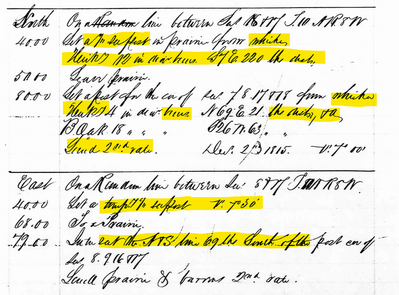 North On a Random line between Sec 18 & 17 T 10 N R 8 W
40.00 Set a ¼ sec post in prairie from which a
W. in dia bears S 7 E. 220 lks dist,
50.00 Leave prairie.
80.00 Set a post for the cor of sec 7 8 17 & 18 from which a
14 in dia bears N 69 E 21. lks dist, &a
B Oak 18 " " P 26 W. 63, "
Land 2nd rate. Dec. 2nd 1815. V. 7° 00'
East On a Random line between Sec 8 & 17 T. R 8 W.
40.00 Set a temp ¼ sec post V. 7° 50'
68.00 To a Prairie.
79.60 Inter sect the N & S line 69 lks South of the post cor of
Sec 8. 9 16 & 17
Level prairie & barrens 2nd rate.